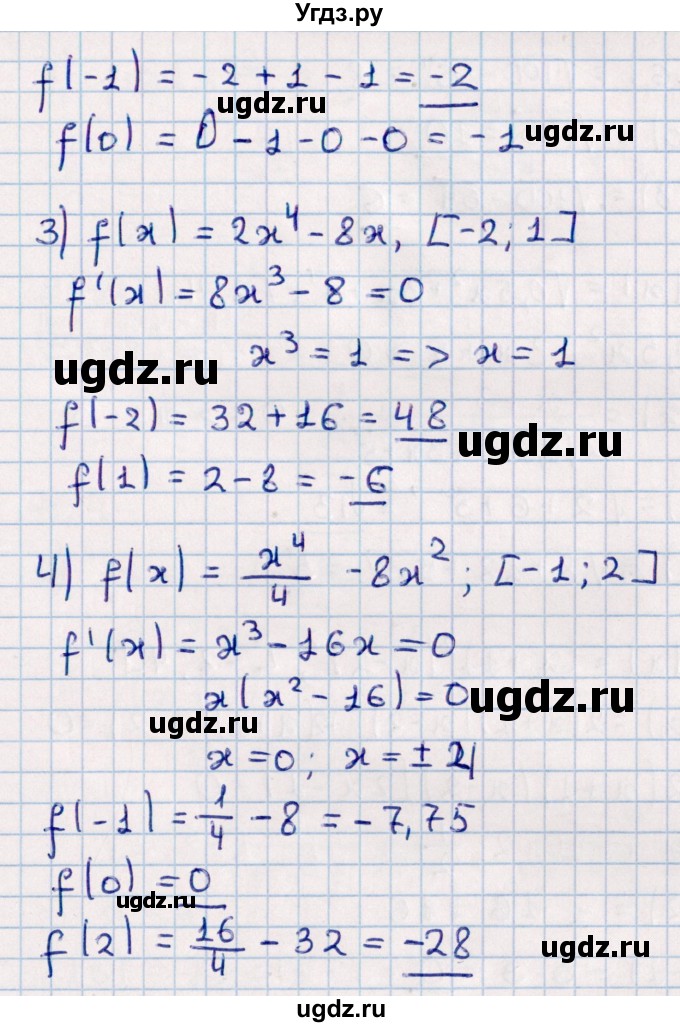 Угдз.ру
f(-1) = -2 + 1 - 1 = -2
ugdz.ru
f(0) = 0 - 1 - 0 - 0 = -1
ugdz.ru
3) f(x) = 2x⁴ - 8x, [-2; 1]
f'(x) = 8x³ - 8 = 0
x³ = 1 => x = 1
ugdz.ru
f(-2) = 32 + 16 = 48
ugdz.ru
f(1) = 2 - 8 = -6
4) f(x) = x⁴/4 - 8x²; [-1; 2]
f'(x) = x³ - 16x = 0
x(x² - 16) = 0
ugdz.ru
ugdz.ru
x = 0; x = ± 4
f(-1) = 1/4 - 8 = -7,75
f(0) = 0
ugdz.ru
f(2) = 16/4 - 32 = -28
ugdz.ru
ugdz.ru